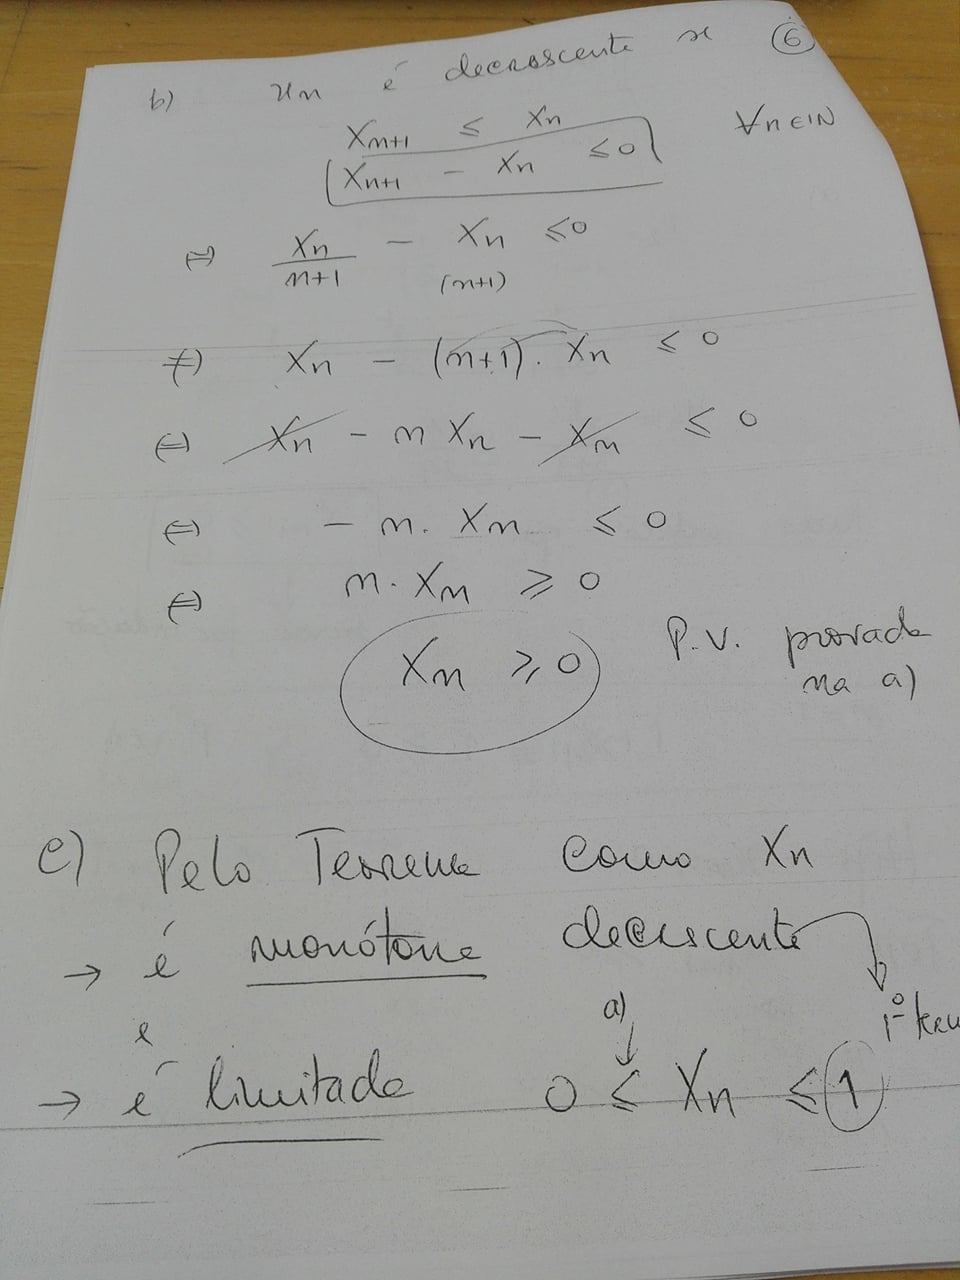 6
b) Xn é decrescente se
Xn+1 ≤ Xn ∀n∈IN
Xn+1 - Xn ≤0
⇔ Xn/n+1 - Xn ≤0
(n+1)
⇔ Xn - (n+1). Xn ≤ 0
⇔ Xn - n Xn - Xn ≤ 0
⇔ - n. Xn ≤ 0
⇔ n. Xn ≥ 0
Xn ≥ 0 P.V. provada
na a)
c) Pelo Teorema como Xn
→ é monótona decrescente
e a) 1º
→ é limitada 0 ≤ Xn ≤ 1